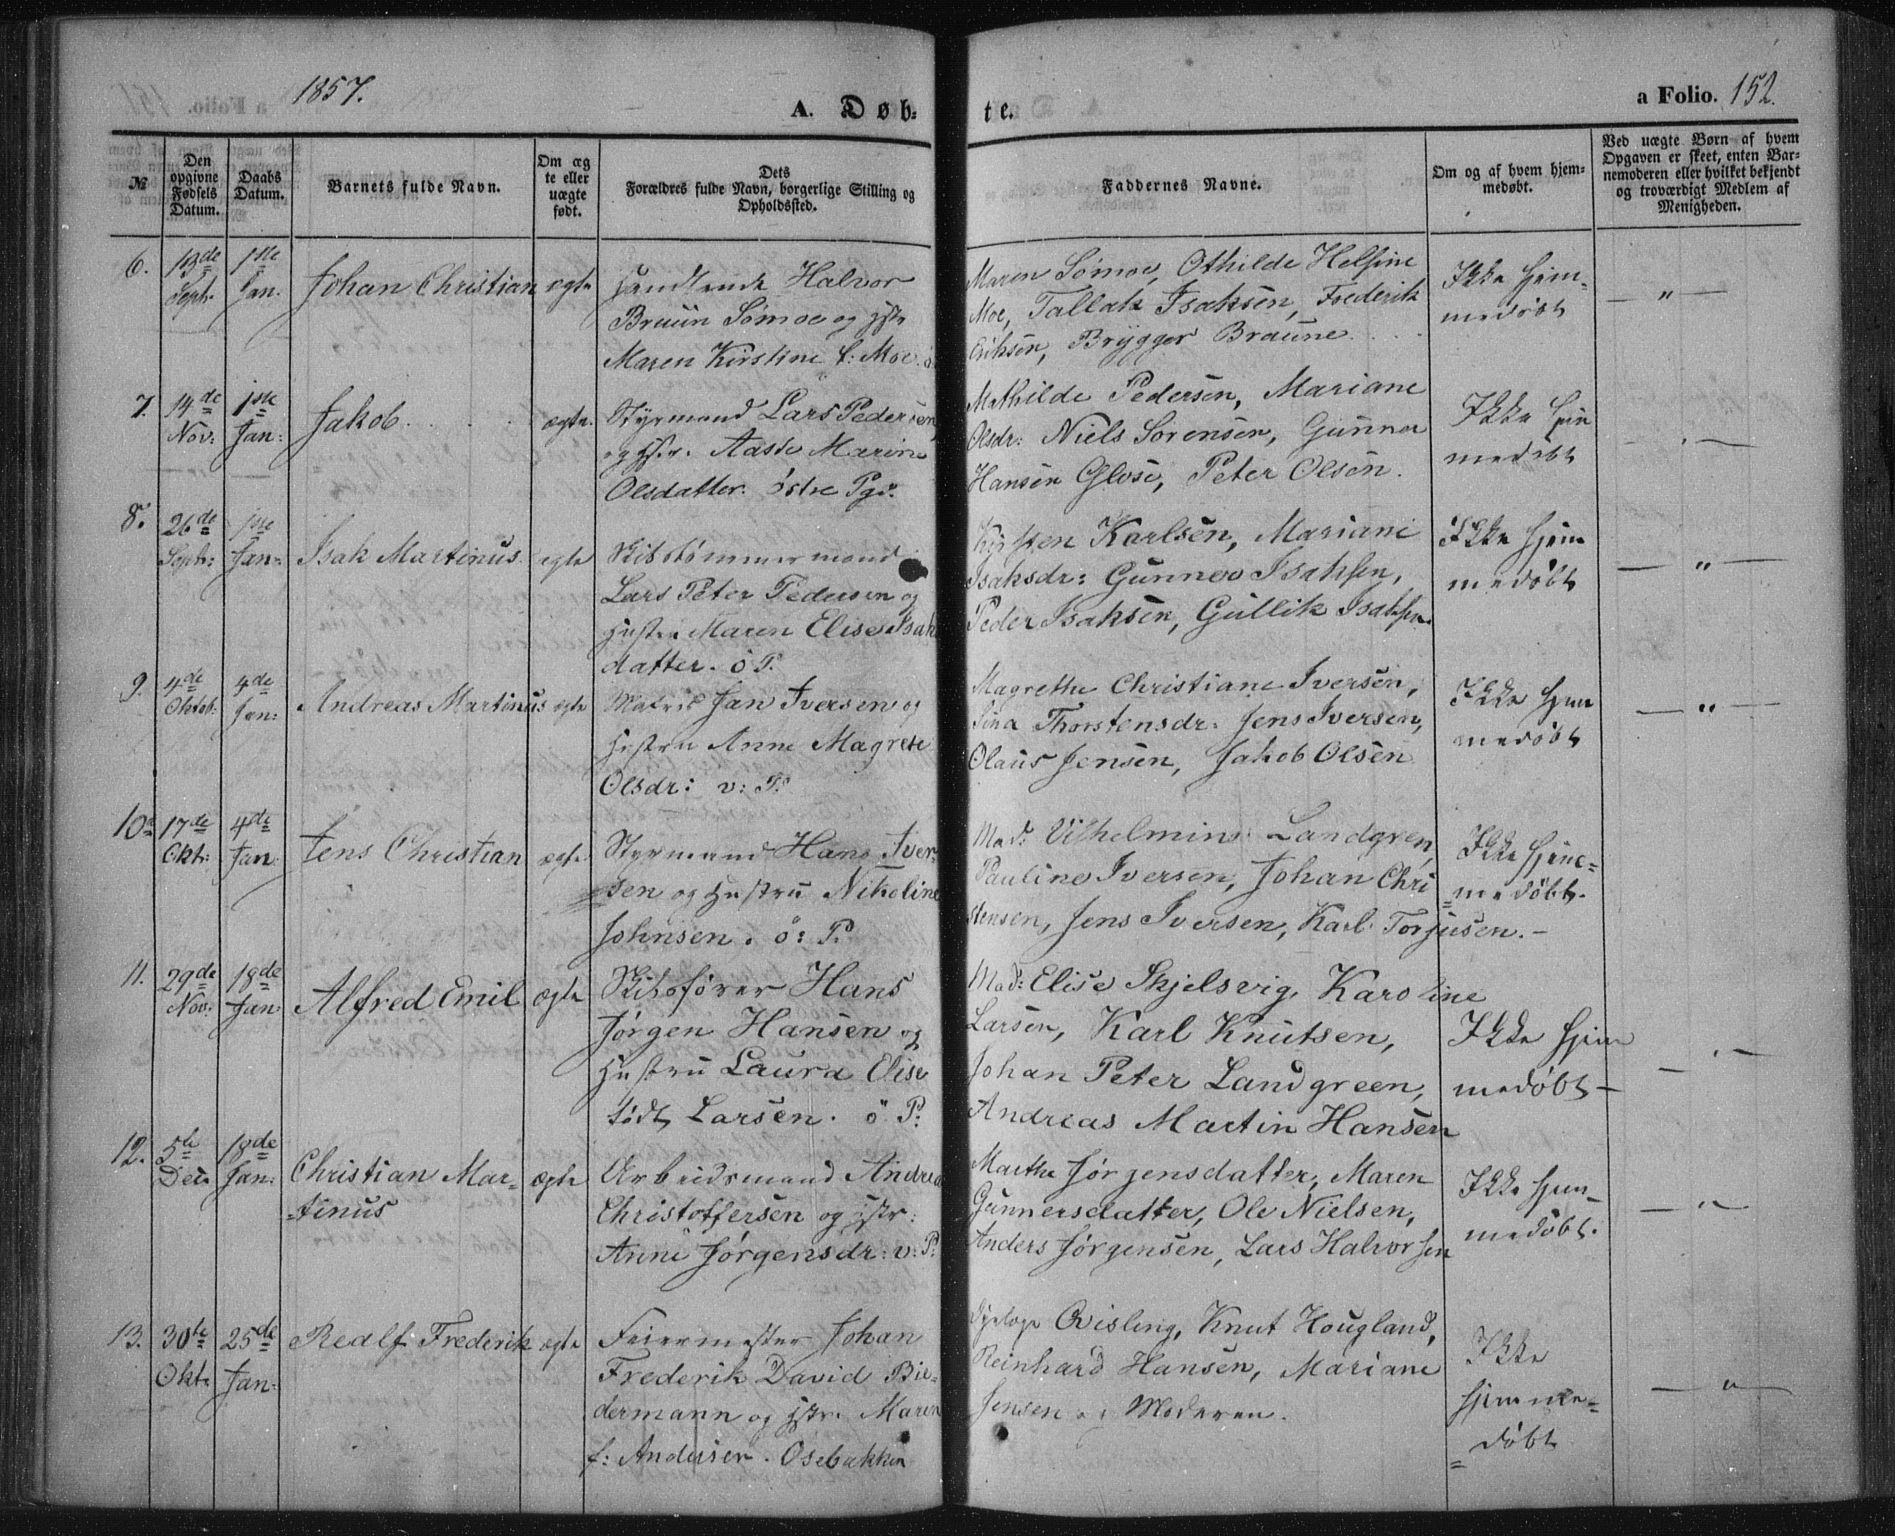 1857.
A. Døb-
te.
a Folio. 152.
№
Den opgivne Fødsels Datum.
Daabs Datum.
Barnets fulde Navn.
Om ægte eller uægte født.
Dets Forældres fulde Navn, borgerlige Stilling og Opholdssted.
Faddernes Navne.
Om og af hvem hjemmedøbt.
Ved uægte Børn af hvem Opgaven er skeet, enten Barnemoderen eller hvilket bekjendt og troværdigt Medlem af Menigheden.
6. 13de Sept. 1ste Jan. Johan Christian ægte
Handlende Halvor
Bruun Sømoe og Hstr
Maren Kirstine f: Moe.
Maren Sømoe, Othilde Helsine
Moe, Tallak Isaksen, Frederik
Eriksen, Brygger Braune
Ikke hjem-
medøbt
— " —
7. 14de Nov: 1ste Jan: Jakob ægte.
Styrmand Lars Pedersen
og Hstr. Aaste Marine
Olsdatter. østre Pgr.
Mathilde Pedersen, Mariane
Olsdr: Niels Sørensen, Gunner
Hansen Glose, Peter Olsen.
Ikke hjem
medøbt
8. 26de Sept: 1ste Jan: Isak Martinus egte
Skibstømmermand
Lars Peter Pedersen og
Hustru Maren Elise Isak
datter. ø P.
Karlsen, Mariane
Isaksdr: Gunner Isaksen,
Peder Isaksen, Gullik Isaksen.
Ikke hjem
medøbt
— " —
9. 4de Oktob: 4de Jan: Andreas Martinus ægte
Matros Jan Iversen og
Hustru Anne Magrete
Olsdr: v: P.
Magrethe Christiane Iversen,
Sina Thorstensdr. Jens Iversen,
Olaus Jensen, Jakob Olsen
Ikke hjem
medøbt
— " —
10. 17de Okt: 4de Jan Jens Christian ægte
Styrmand Hans Iver-
sen og Hustru Nikoline
Johnsen. ø: P.
Mad: Vilhelmine Landgren,
Pauline Iversen, Johan Chri
stensen, Jens Iversen, Karl Torjusen. —
Ikke hjem-
medøbt.
11. 29de Nov: 18de Jan Alfred Emil ægte
Skibsfører Hans
Jørgen Hansen og
Hustru Laura Elise
født Larsen. ø P:
Mad: Elise Skjelsvig, Karoline
Larsen, Karl Knutsen,
Johan Peter Landgreen,
Andreas Martin Hansen
Ikke hjem
medøbt —
12. 5te Dec. 18de Jan: Christian Mar-
tinus ægte
Arbeidsmand Andrea
Christoffersen og Hstr:
Anne Jørgensdr: v: P:
Marthe Jørgensdatter, Maren
Gunnersdatter, Ole Nielsen,
Anders Jørgensen, Lars Halvorsen
Ikke hjem-
medøbt.
— " —
13. 30te Okt. 25de Jan: Realf Frederik ægte
Feiermester Johan
Frederik David Bie-
dermann og Hstr. Maren
f: Andersen. Osebakken
Qvisling, Knut Hougland,
Reinhard Hansen, Mariane
Jensen og Moderen.
Ikke
hjemme-
døbt
— " —